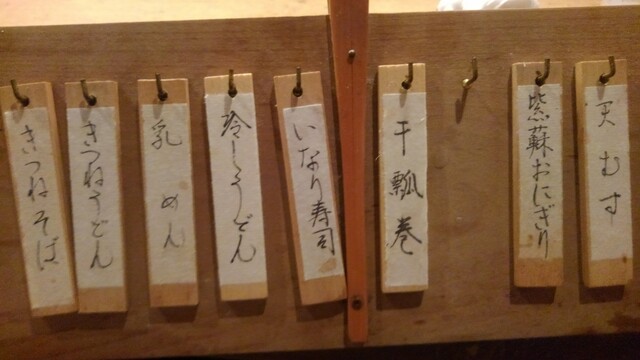 天むす
紫蘇おにぎり
干瓢巻
いなり寿司
冷しうどん
乳めん
きつねうどん
きつねそば